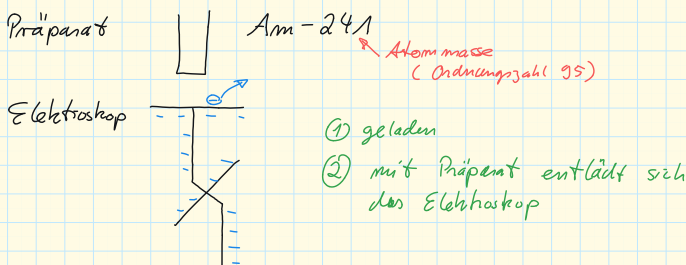 Präparat
Am-241
Atommasse
(Ordnungszahl 95)
Elektroskop
① geladen
② mit Präparat entlädt sich
das Elektroskop